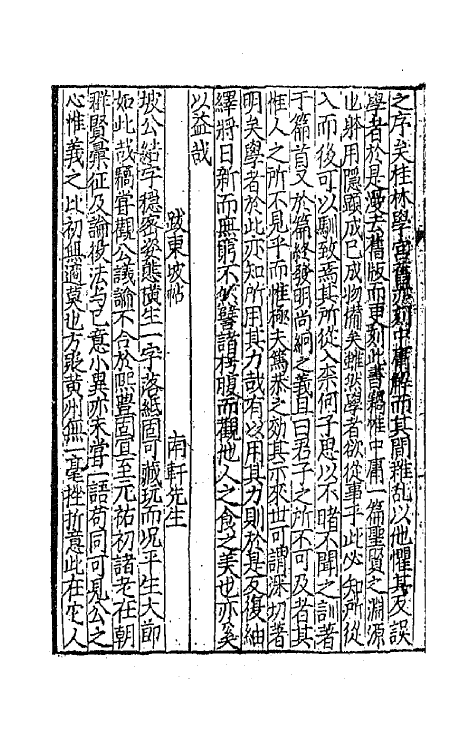 之序矣桂林學宮舊亦刻中庸解而其間雜乱以他懼其反誤
學者於是漫去舊版而更刻此書竊惟中庸一篇聖賢之淵源
也將用隱顕成己成物備矣雖然學者欲從事乎此必知所從
入而後可以馴致焉其所從入柰何子思以不睹不聞之訓著
于篇首又於篇終發明尚絅之義且曰君子之所不可及者其
惟人之所不見乎而惟極夫篤恭之効其示來世可謂深切著
明矣學者於此亦知所用其力哉有以用其力則於是反復紬
繹將日新而無窮不然譬諸枵腹而觀他人之食之美也亦奚
以益哉
跋東坡帖 南軒先生
坡公結字穩密姿態横生一字落紙固可藏玩而况平生大節
如此哉竊嘗觀公議論不合於熙豊固宜至元祐初諸老在朝
群賢彙征及論役法与己意小異亦未嘗一語苟同可見公之
心惟義之比初無適莫也方貶黄州無一毫挫折意此在它人